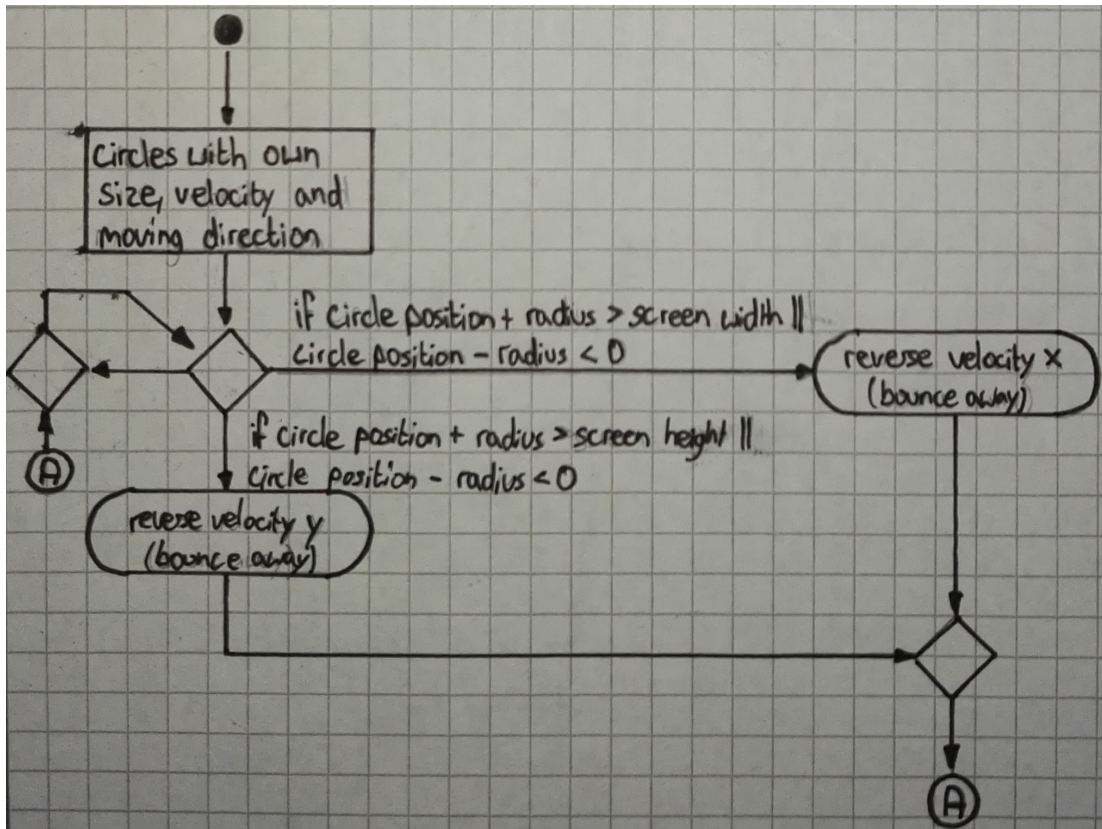 Circles with own
size, velocity and
moving direction
if circle position + radius > screen width ||
circle position - radius < 0
reverse velocity x
(bounce away)
if circle position + radius > screen height ||
circle position - radius < 0
A
reverse velocity y
(bounce away)
A